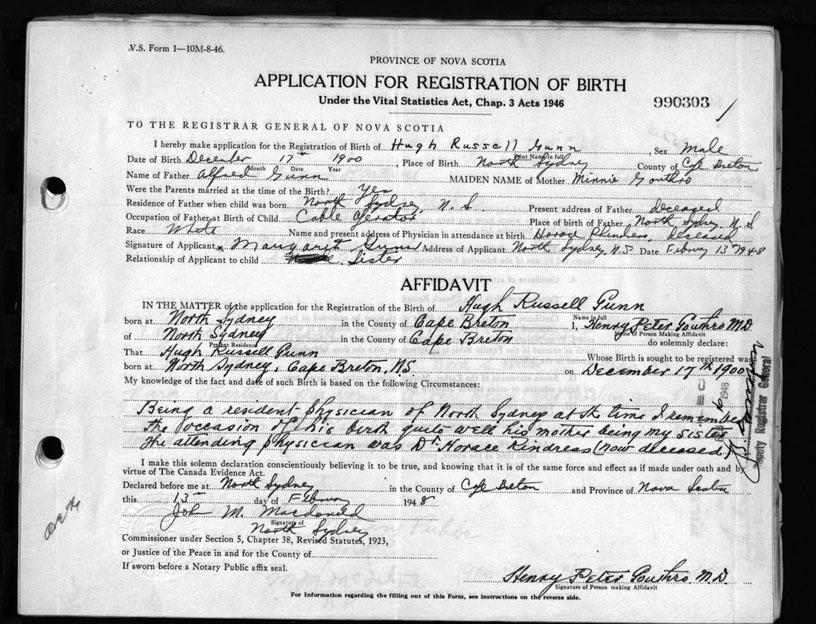 V.S. Form 1—10M-8-46.
PROVINCE OF NOVA SCOTIA
APPLICATION FOR REGISTRATION OF BIRTH
Under the Vital Statistics Act, Chap. 3 Acts 1946
990303
TO THE REGISTRAR GENERAL OF NOVA SCOTIA
I hereby make application for the Registration of Birth of Hugh Russell Gunn Sex Male
Print Name in full
Date of Birth December 17th 1900, Place of Birth North Sydney County of Cape Breton
Month Date Year
Name of Father Alfred Gunn MAIDEN NAME of Mother Minnie Gouthro
Were the Parents married at the time of the Birth? Yes
Residence of Father when child was born North Sydney, N.S. Present address of Father deceased
Occupation of Father at Birth of Child Cable Place of birth of Father North Sydney N.S.
Race White Name and present address of Physician in attendance at birth Horace deceased
Signature of Applicant x Margaret Gunn Address of Applicant North Sydney N.S. Date 13th 1948
Relationship of Applicant to child Sister
AFFIDAVIT
IN THE MATTER of the application for the Registration of the Birth of Hugh Russell Gunn
Name in full
born at North Sydney in the County of Cape Breton I, Henry Peter Gouthro M.D
Name of Person Making Affidavit
of North Sydney in the County of Cape Breton do solemnly declare:
Present Residence
That Hugh Russell Gunn Whose Birth is sought to be registered was
born at North Sydney, Cape Breton, N.S. on December 17th 1900
My knowledge of the fact and date of such Birth is based on the following Circumstances:
Being a resident physician of North Sydney at the time I remember
the occasion of his birth quite well his mother being my sister
The attending physician was Dr. Horace (now deceased)
I make this solemn declaration conscientiously believing it to be true, and knowing that it is of the same force and effect as if made under oath and by
virtue of The Canada Evidence Act.
Declared before me at North Sydney in the County of Cape Breton and Province of Nova Scotia
this 13th day of 1948
M. Macdonald
Signature of
North Sydney
Commissioner under Section 5, Chapter 38, Revised Statutes, 1923,
or Justice of the Peace in and for the County of
If sworn before a Notary Public affix seal.
Henry Peter Gouthro. M.D.
Signature of Person making Affidavit
For Information regarding the filling out of this Form, see instructions on the reverse side.
1948
Deputy Registrar General